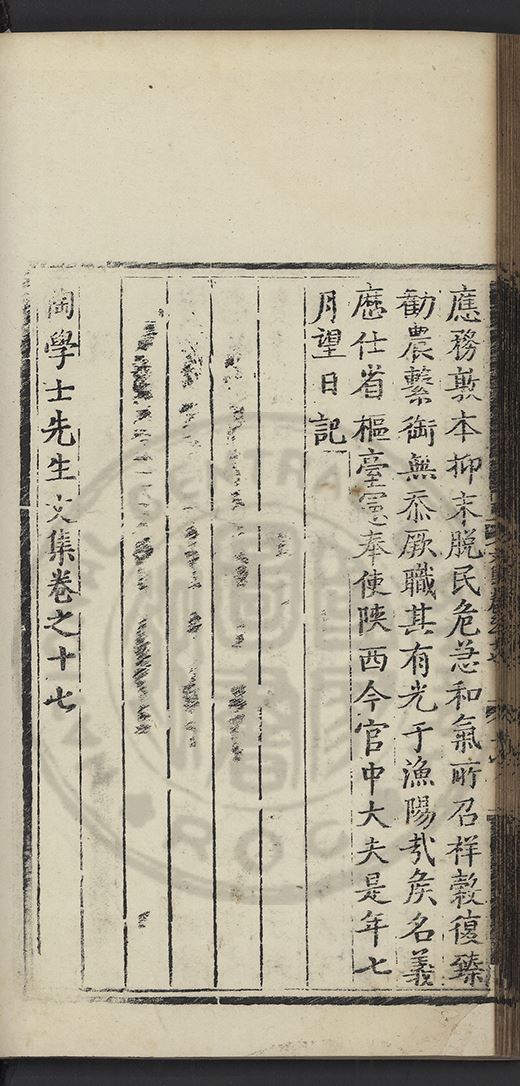 應務敦本抑末脫民危急和氣所召祥穀復臻
勸農繫銜無忝厥職其有光于漁陽哉矦名義
歴仕省樞臺憲奉使陜西今官中大夫是年七
月望日記
陶學士先生文集卷之十七